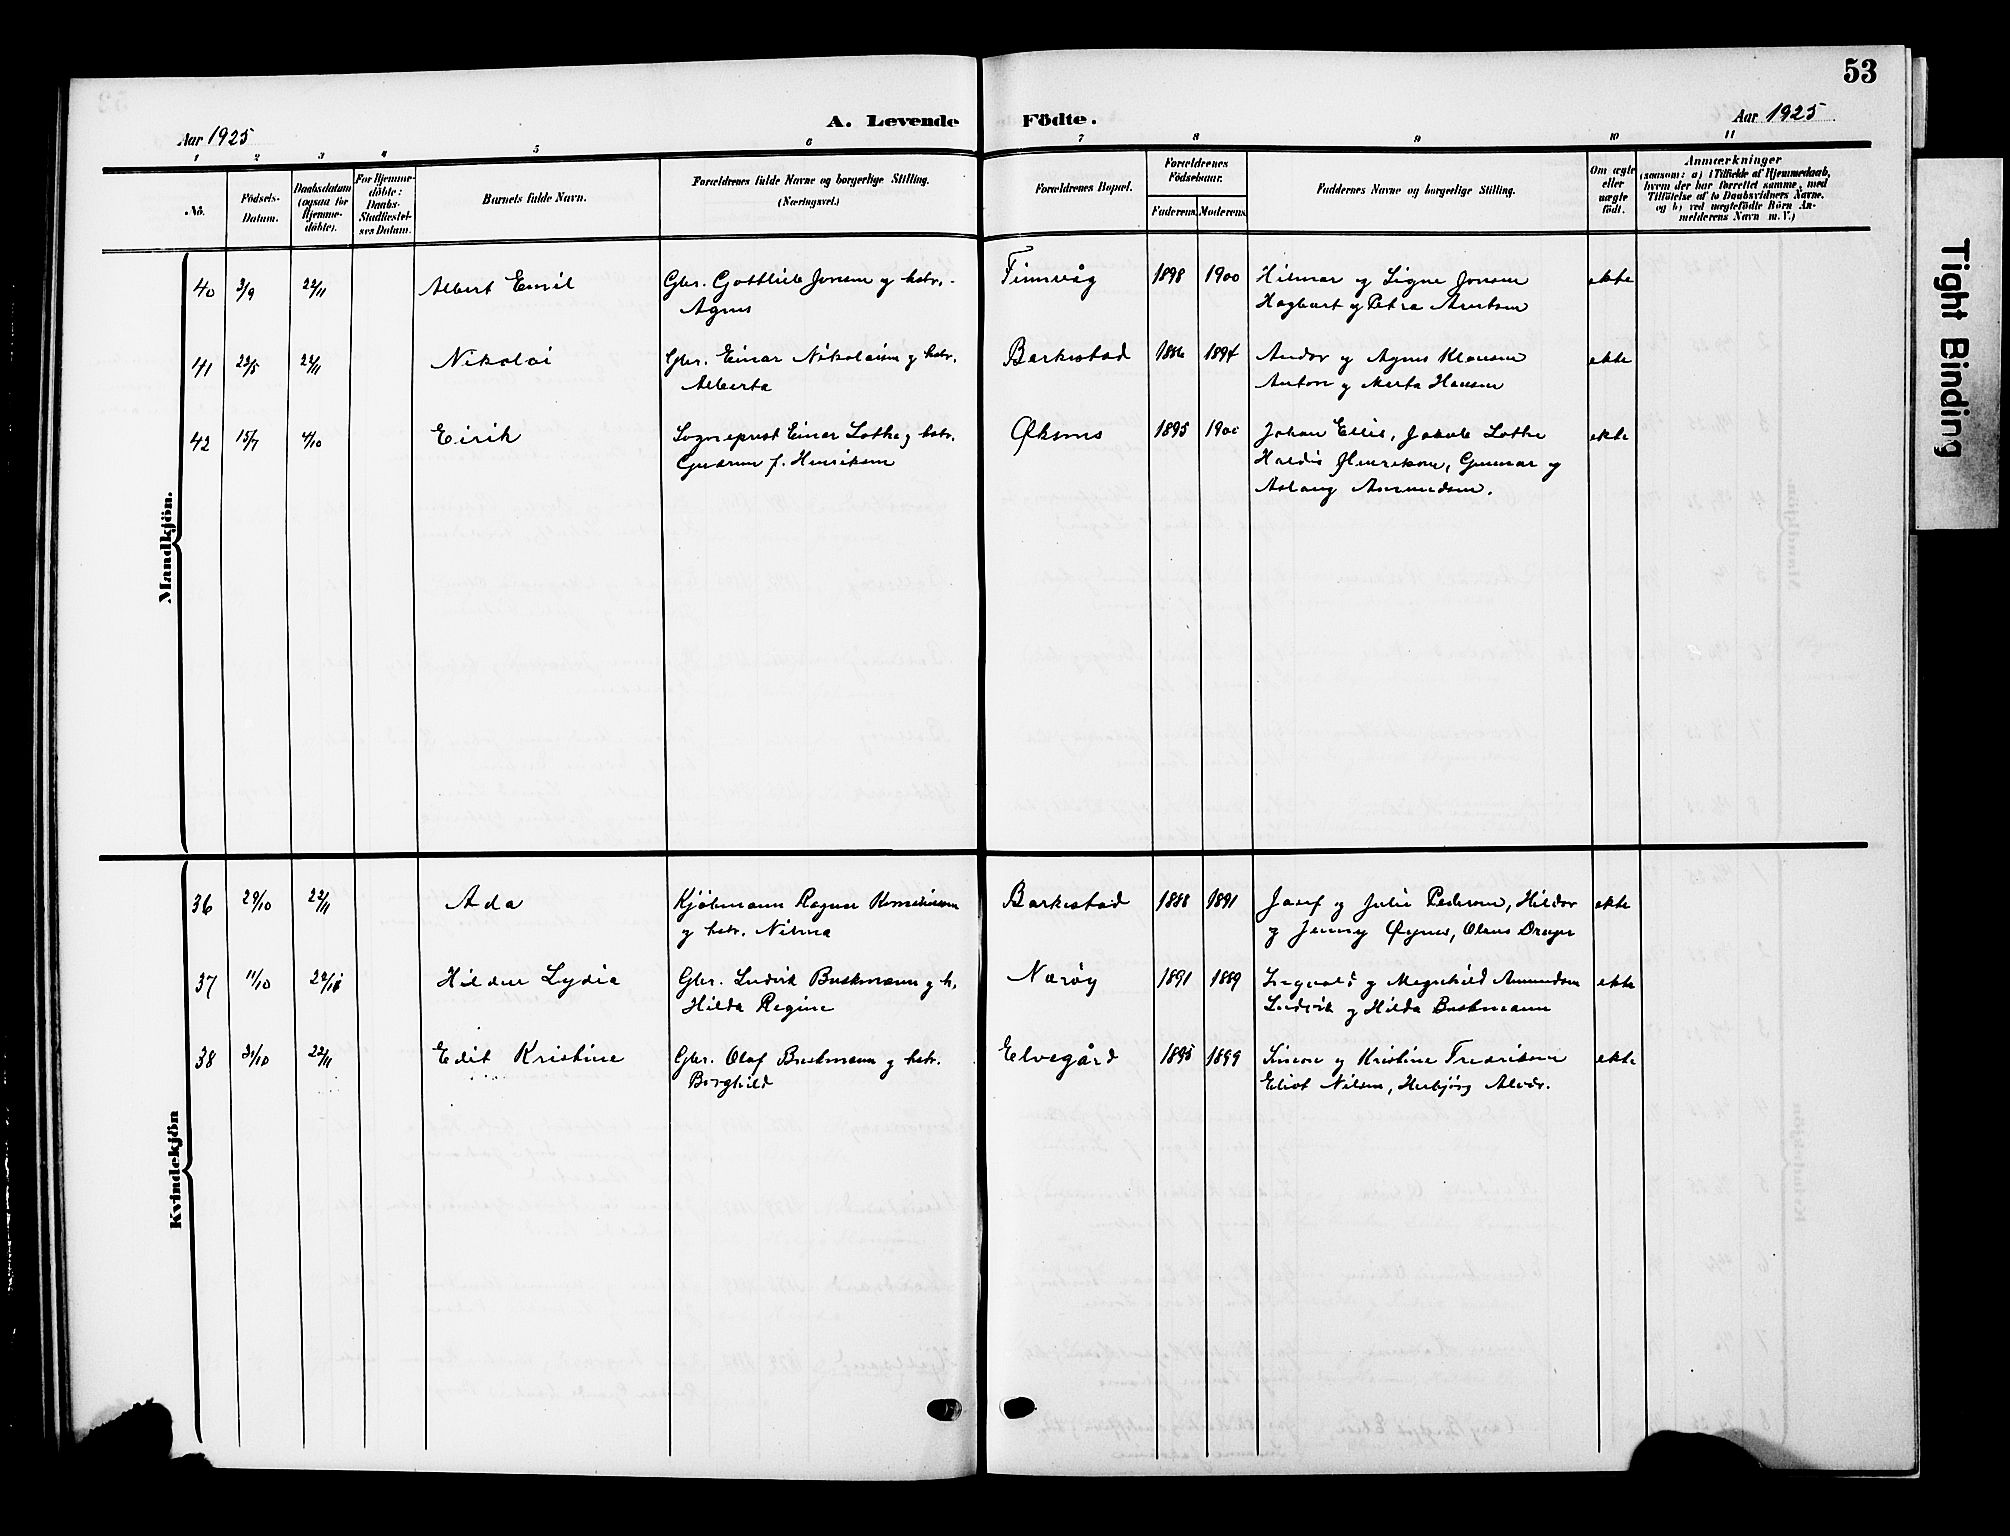 53
A. Levende Födte.
Aar 1925
Aar 1925
1 2 3 4 5 6 7 8 9 10 11
No.
Födsels-
Datum.
Daabsdatum
(ogsaa for
Hjemme-
döbte).
For Hjemme-
döbte:
Daabs-
Stadfæstel-
ses Datum.
Barnets fulde Navn.
Forældrenes fulde Navne og borgerlige Stilling.
(Næringsvei.)
Forældrenes Bopæl.
Forældrenes
Födselsaar.
Faderens. Moderens.
Faddernes Navne og borgerlige Stilling.
Om ægte
eller
uægte
födt.
Anmærkninger
(saasom: a) i Tilfælde af Hjemmedaab,
hvem der har forrettet samme, med
Tilföielse af to Daabsvidners Navne.
og b) ved uægtefödte Börn An-
melderens Navn m. V.)
Mandkjön.
40 3/9 22/11 Albert Emil Gbr. Gottlieb Jensen og hstr. Finnvåg 1898 1900 Hilmar og Signe Jensen ekte
Agnes Hagbart og Petra Arntsen
41 22/5 22/11 Nikolai Gbr. Einar Nikolaisen og hstr. Barkestad 1886 1894 Andor og Agnes Klausen ekte
Alberta Anton og Marta Hansen
42 15/7 4/10 Eirik Sogneprest Einar Lothe og hstr. Øksnes 1895 1900 Johan Ellis, Jakob Lothe ekte
Gudrun f. Henriksen Haldis Henriksen, Gunnar og
Aslaug Amundsen.
Kvindekjön
36 29/10 22/11 Ada Kjøbmann Ragnar og hstr. Nilma Barkestad 1888 1891 Josef og Julie Pedersen, Hildor ekte
og Jenny Øynes, Olaus Dreyer
37 11/10 22/11 Hildur Lydia Gbr. Ludvik Buschmann og h. Nærøy 1891 1889 Ingvald og Magnhild Amundsen ekte
Hilda Regine Ludvik og Hilda Buschmann
38 31/10 22/11 Edit Kristine Gbr. Olaf Buschmann og hstr. Elvegård 1895 1899 Simon og Kristine Fredriksen ekte
Borghild Eliot Nilsen, Herbjörg
Tight Binding